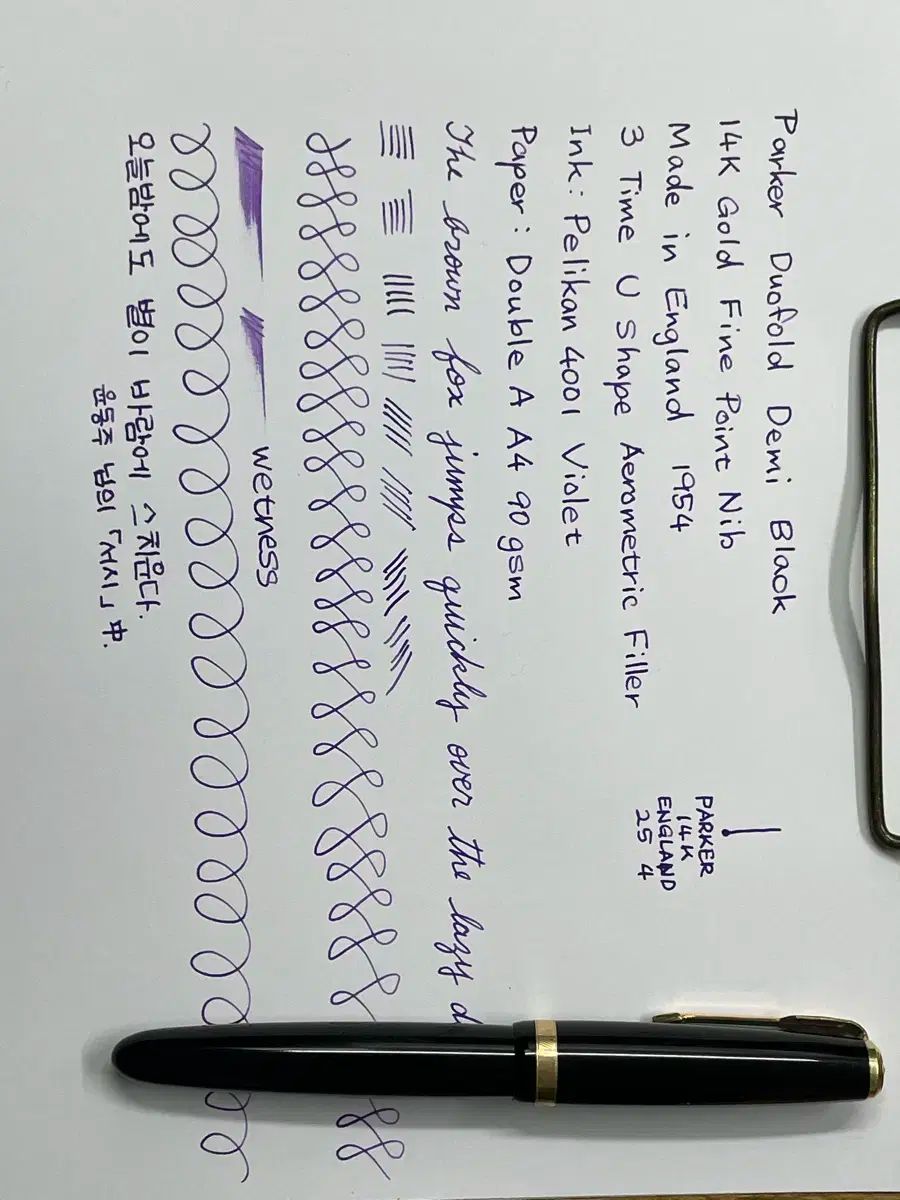 Parker Duofold Demi Black
14K Gold Fine Point Nib
Made in England 1954
3 Time U Shape Aerometric Filler
Ink: Pelikan 4001 Violet
Paper: Double A A4 90gsm
PARKER
14K
ENGLAND
25 4
The brown fox jumps quickly over the lazy d
wetness
오늘밤에도 별이 바람에 스치운다.
윤동주 님의 「서시」 中.